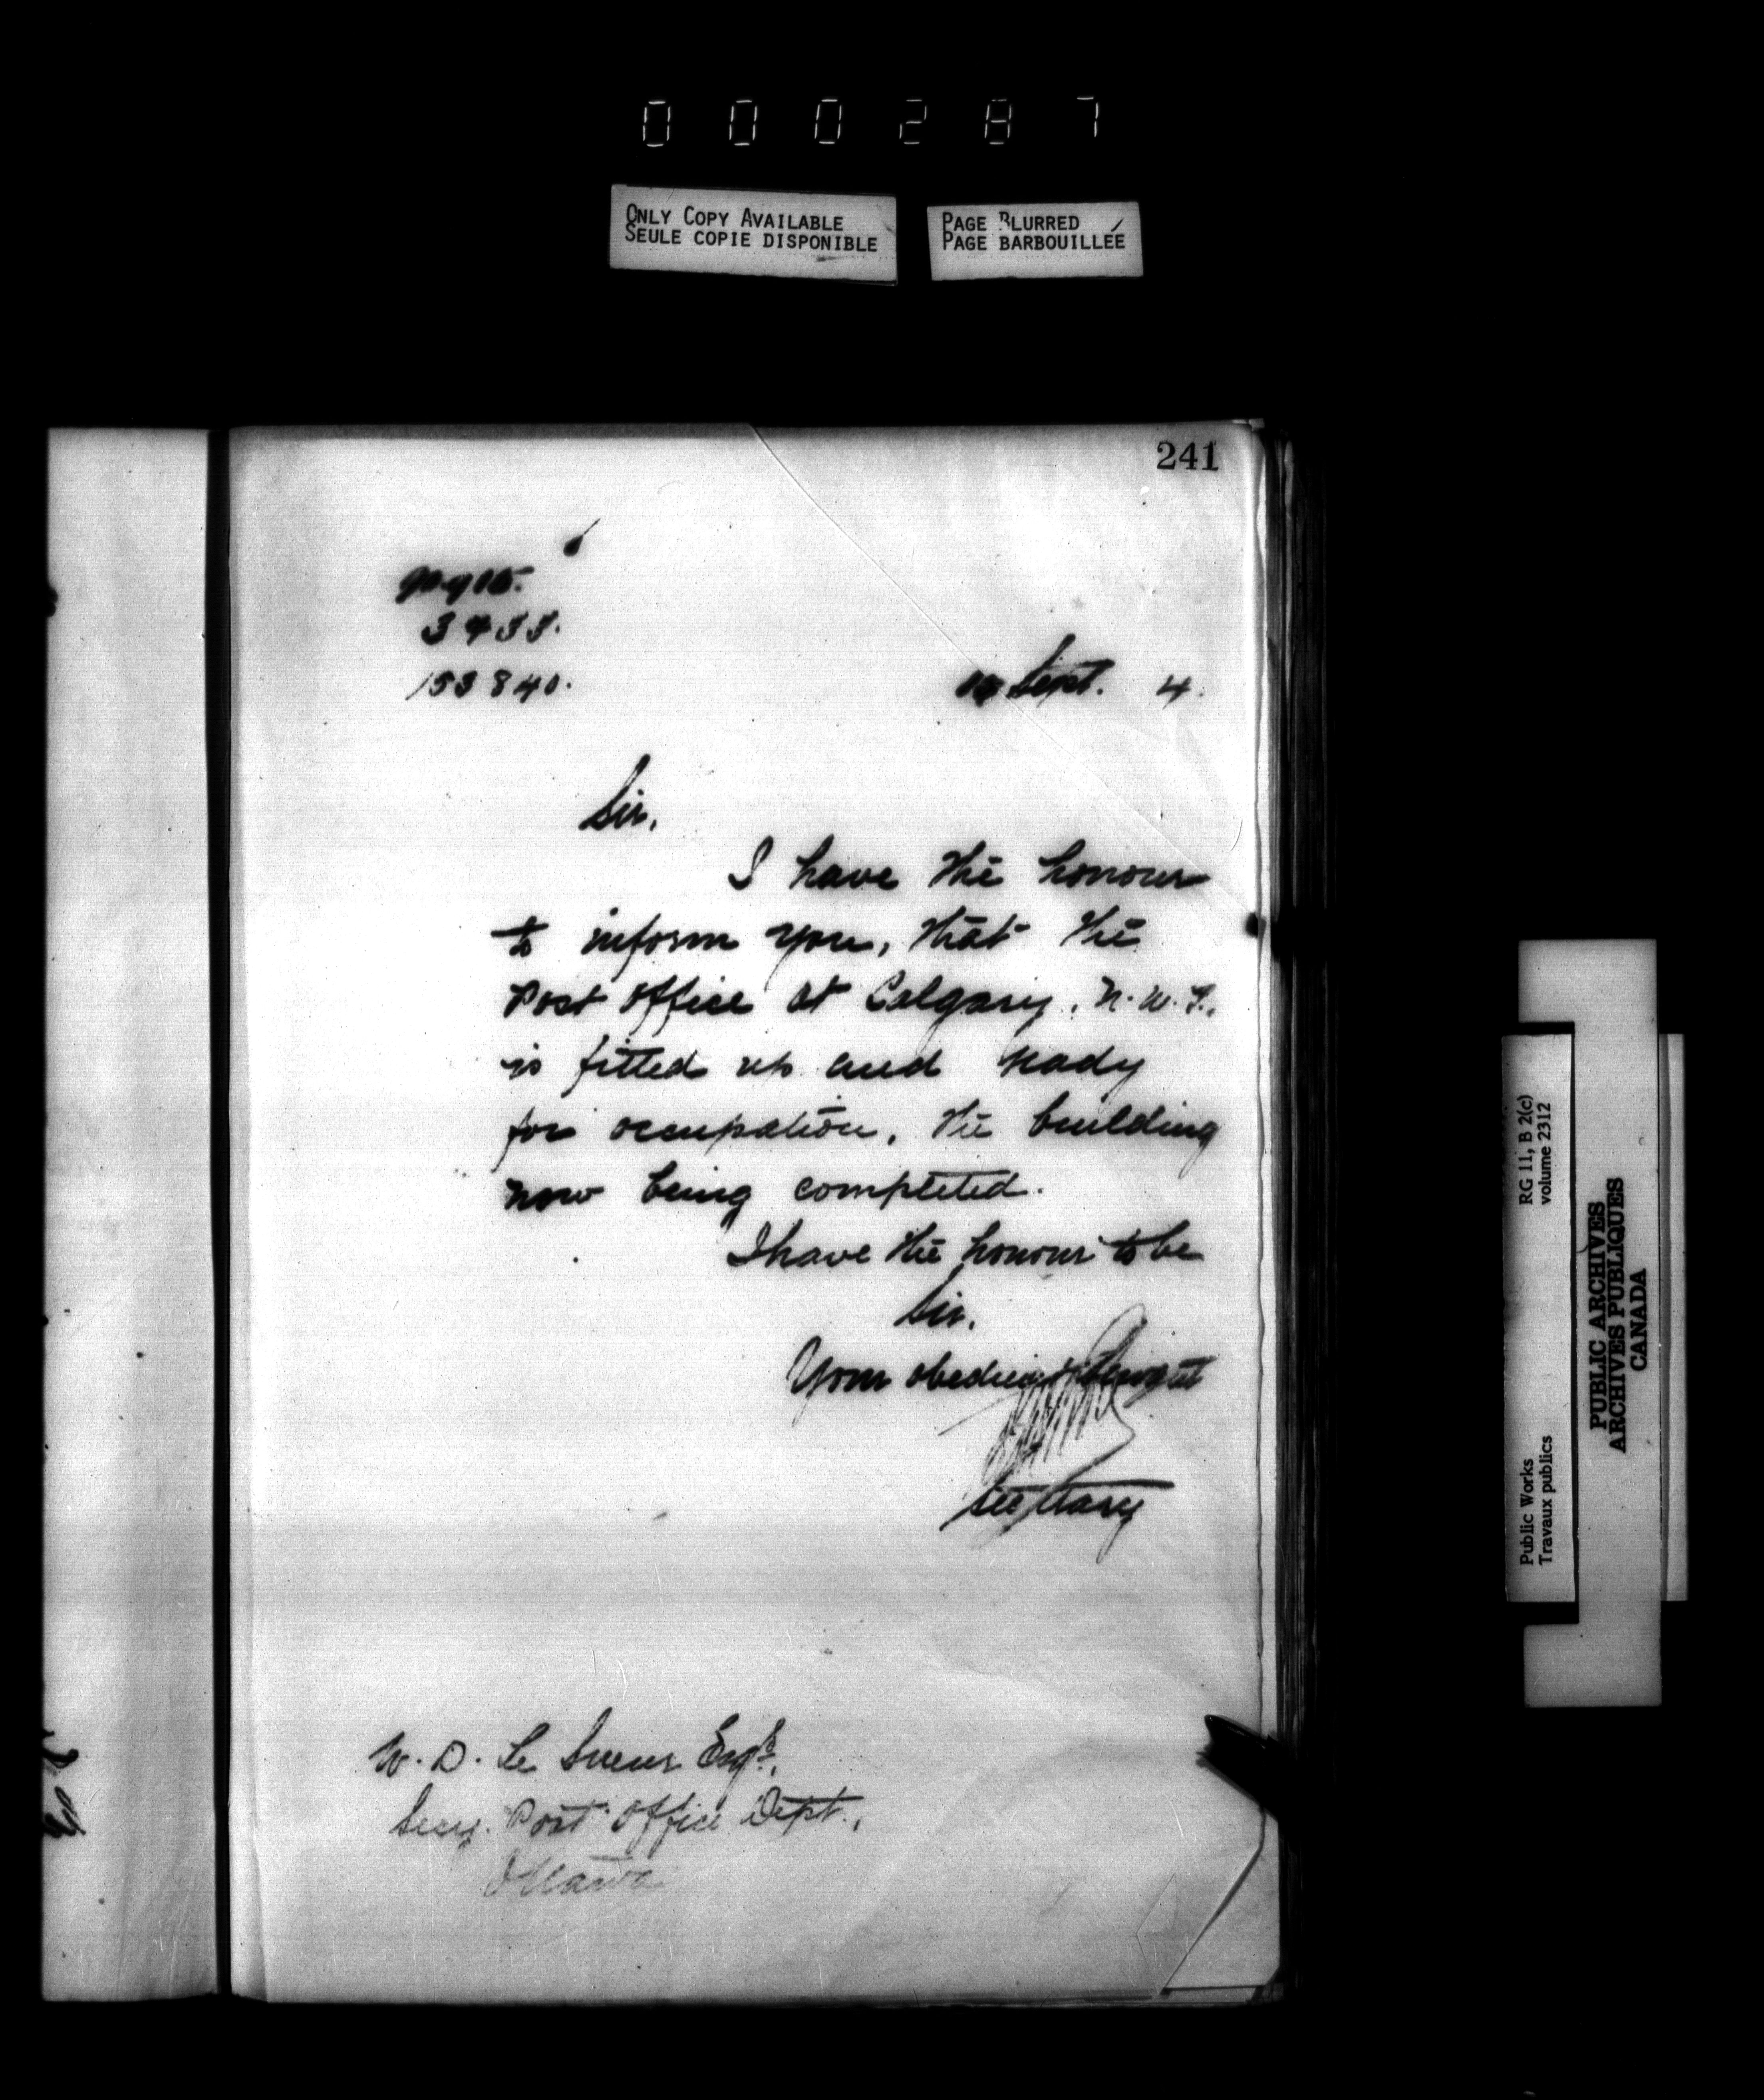 000287
ONLY COPY AVAILABLE
SEULE COPIE DISPONIBLE
PAGE BLURRED
PAGE BARBOUILLÉE
241
153840.
Sept. 4.
Sir,
I have the honour
to inform you, that the
Post Office at Calgary, N.W.T.,
is fitted up and ready
for occupation, the building
now being completed.
I have the honour to be
Sir,
Your obedient Servant
Secretary
W. D. Le Sueur Esqre.,
Secy. Post Office Dept.,
Ottawa
RG 11, B 2(c)
volume 2312
Public Works
Travaux publics
PUBLIC ARCHIVES
ARCHIVES PUBLIQUES
CANADA